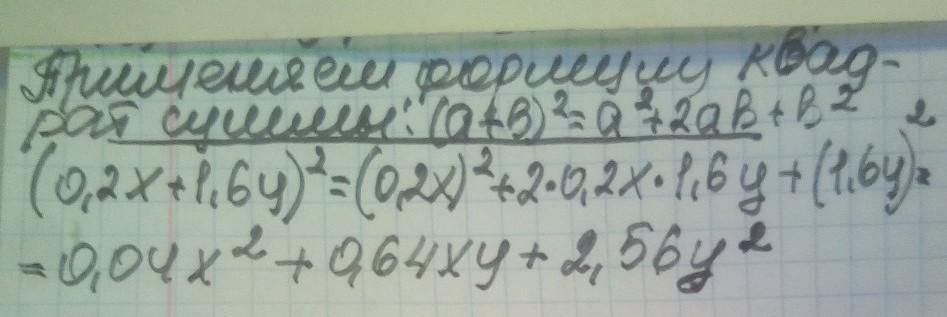 Применяем формулу квад-
рат суммы: (a+b)²=a²+2ab+b²
(0,2x+1,6y)²=(0,2x)²+2·0,2x·1,6y+(1,6y)²=
=0,04x²+0,64xy+2,56y²